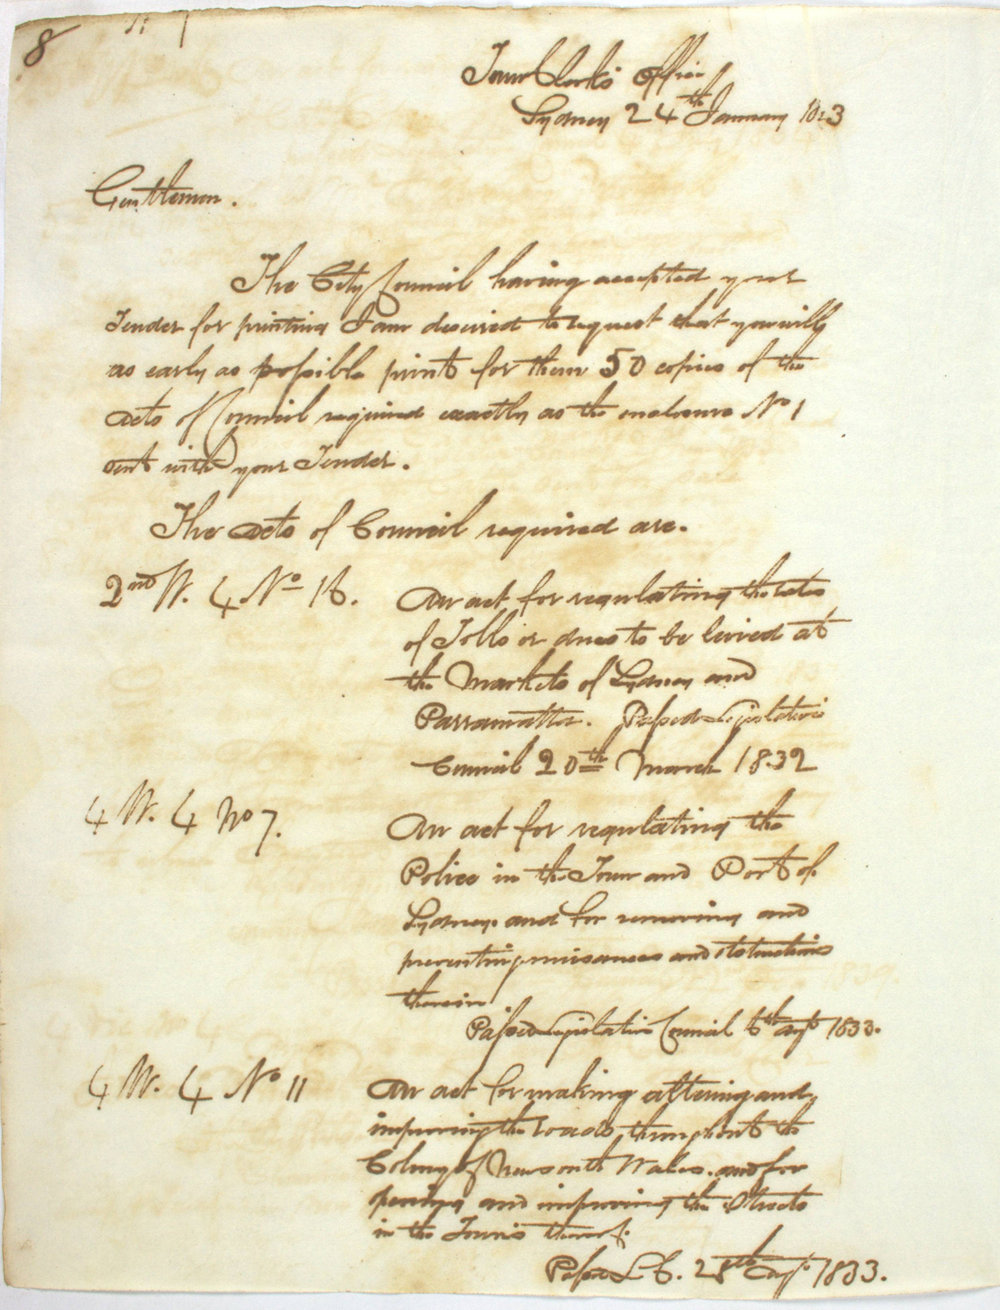 8
Town Clerks Office
Sydney 24th January
Gentlemen.
The City Council having accepted your
Tender for printing I am desired to request that you will
as early as possible print for them 50 copies of the
Acts of Council required exactly as the enclosure No 1
sent with your Tender.
The Acts of Council required are.
2nd W. 4 No 16. An act for regulating the
of Tolls or dues to be levied at
the Markets of Sydney and
Parramatta. Passed Legislative
Council 20th March 1832
4 W. 4 No 7. An act for regulating the
Police in the Town and Port of
Sydney. and for removing and
preventing nuisances and obstructions
therein
Passed Legislative Council 6th Augt 1833.
4 W. 4 No 11 An act for making altering and
improving the roads throughout the
Colony of New South Wales. and for
and improving the Streets
in the Towns thereof.
Passed L C. 28th Augt 1833.